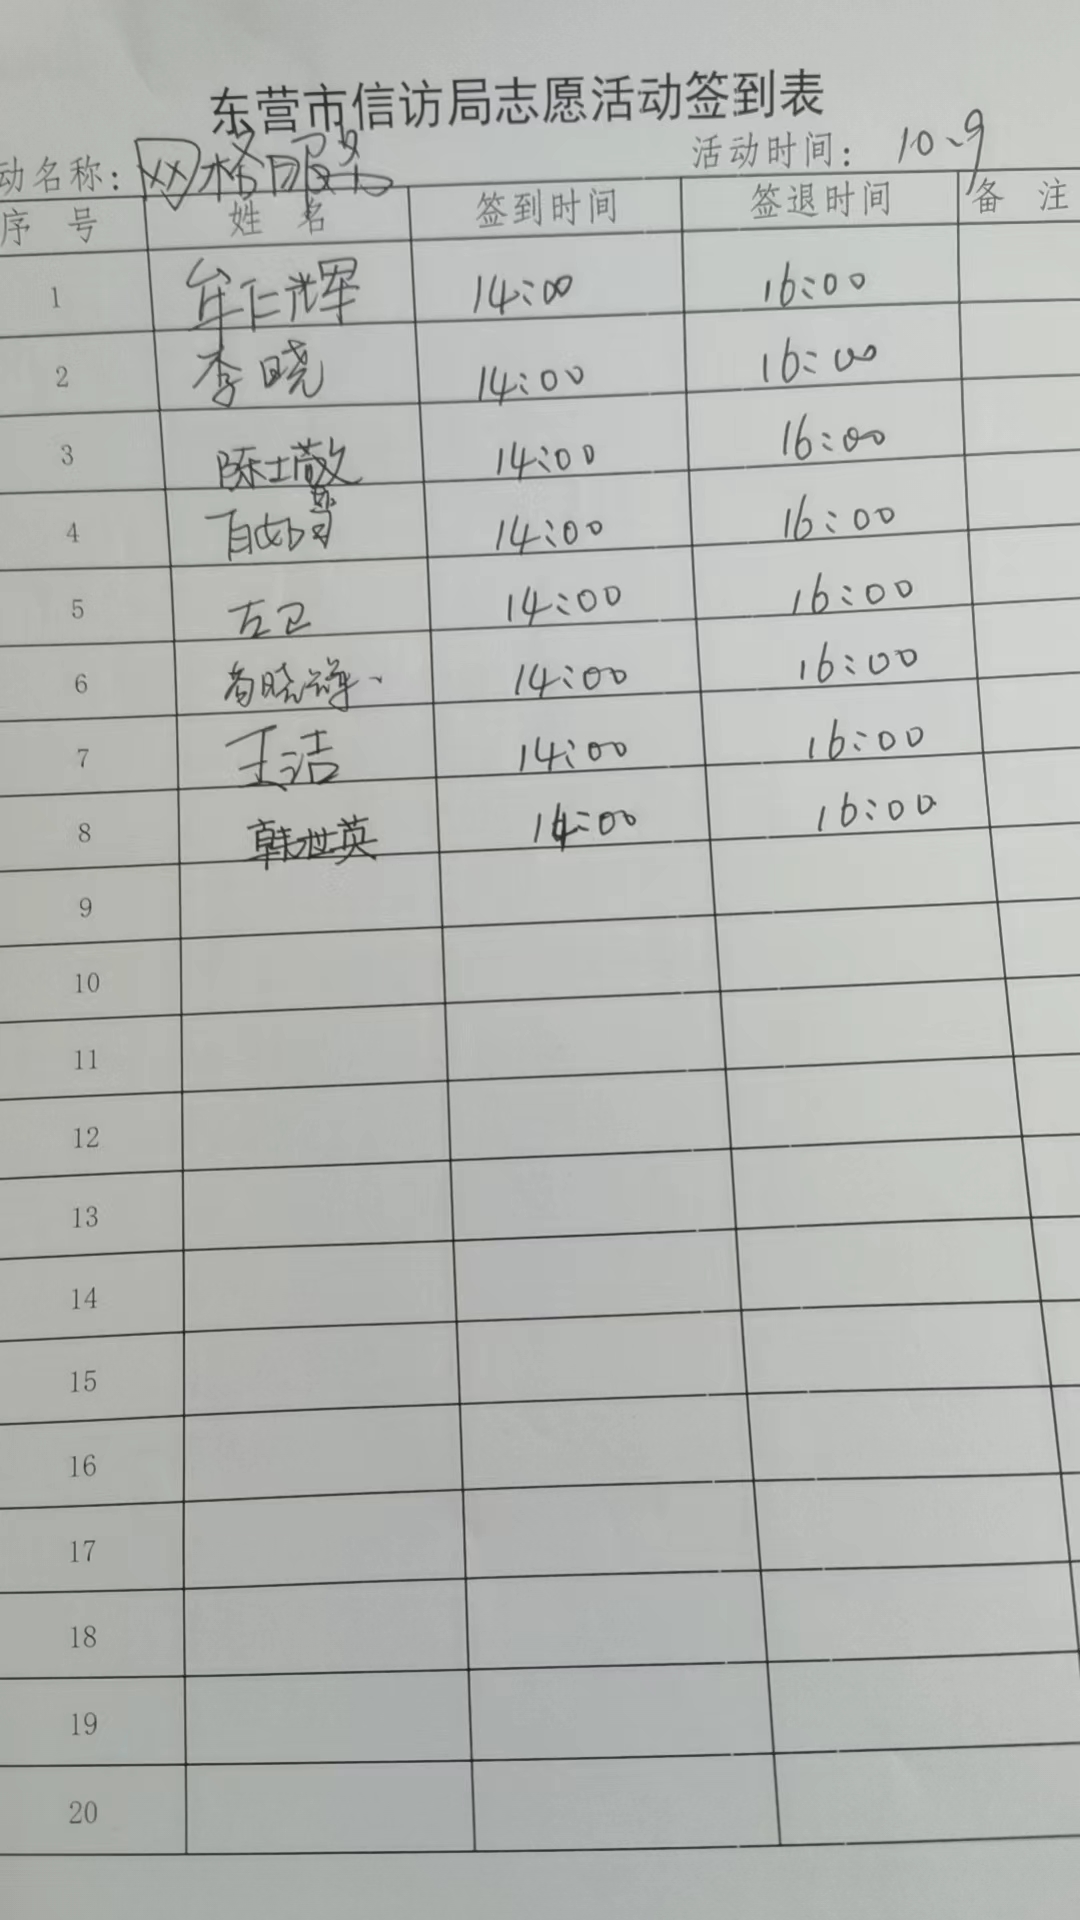 东营市信访局志愿活动签到表
动名称：网格服务 活动时间：10.9
序 号 姓 名 签到时间 签退时间 备 注
1 牟仁辉 14:00 16:00
2 李晓 14:00 16:00
3 陈士敬 14:00 16:00
4 14:00 16:00
5 左卫 14:00 16:00
6 14:00 16:00
7 王洁 14:00 16:00
8 韩世英 14:00 16:00
9
10
11
12
13
14
15
16
17
18
19
20